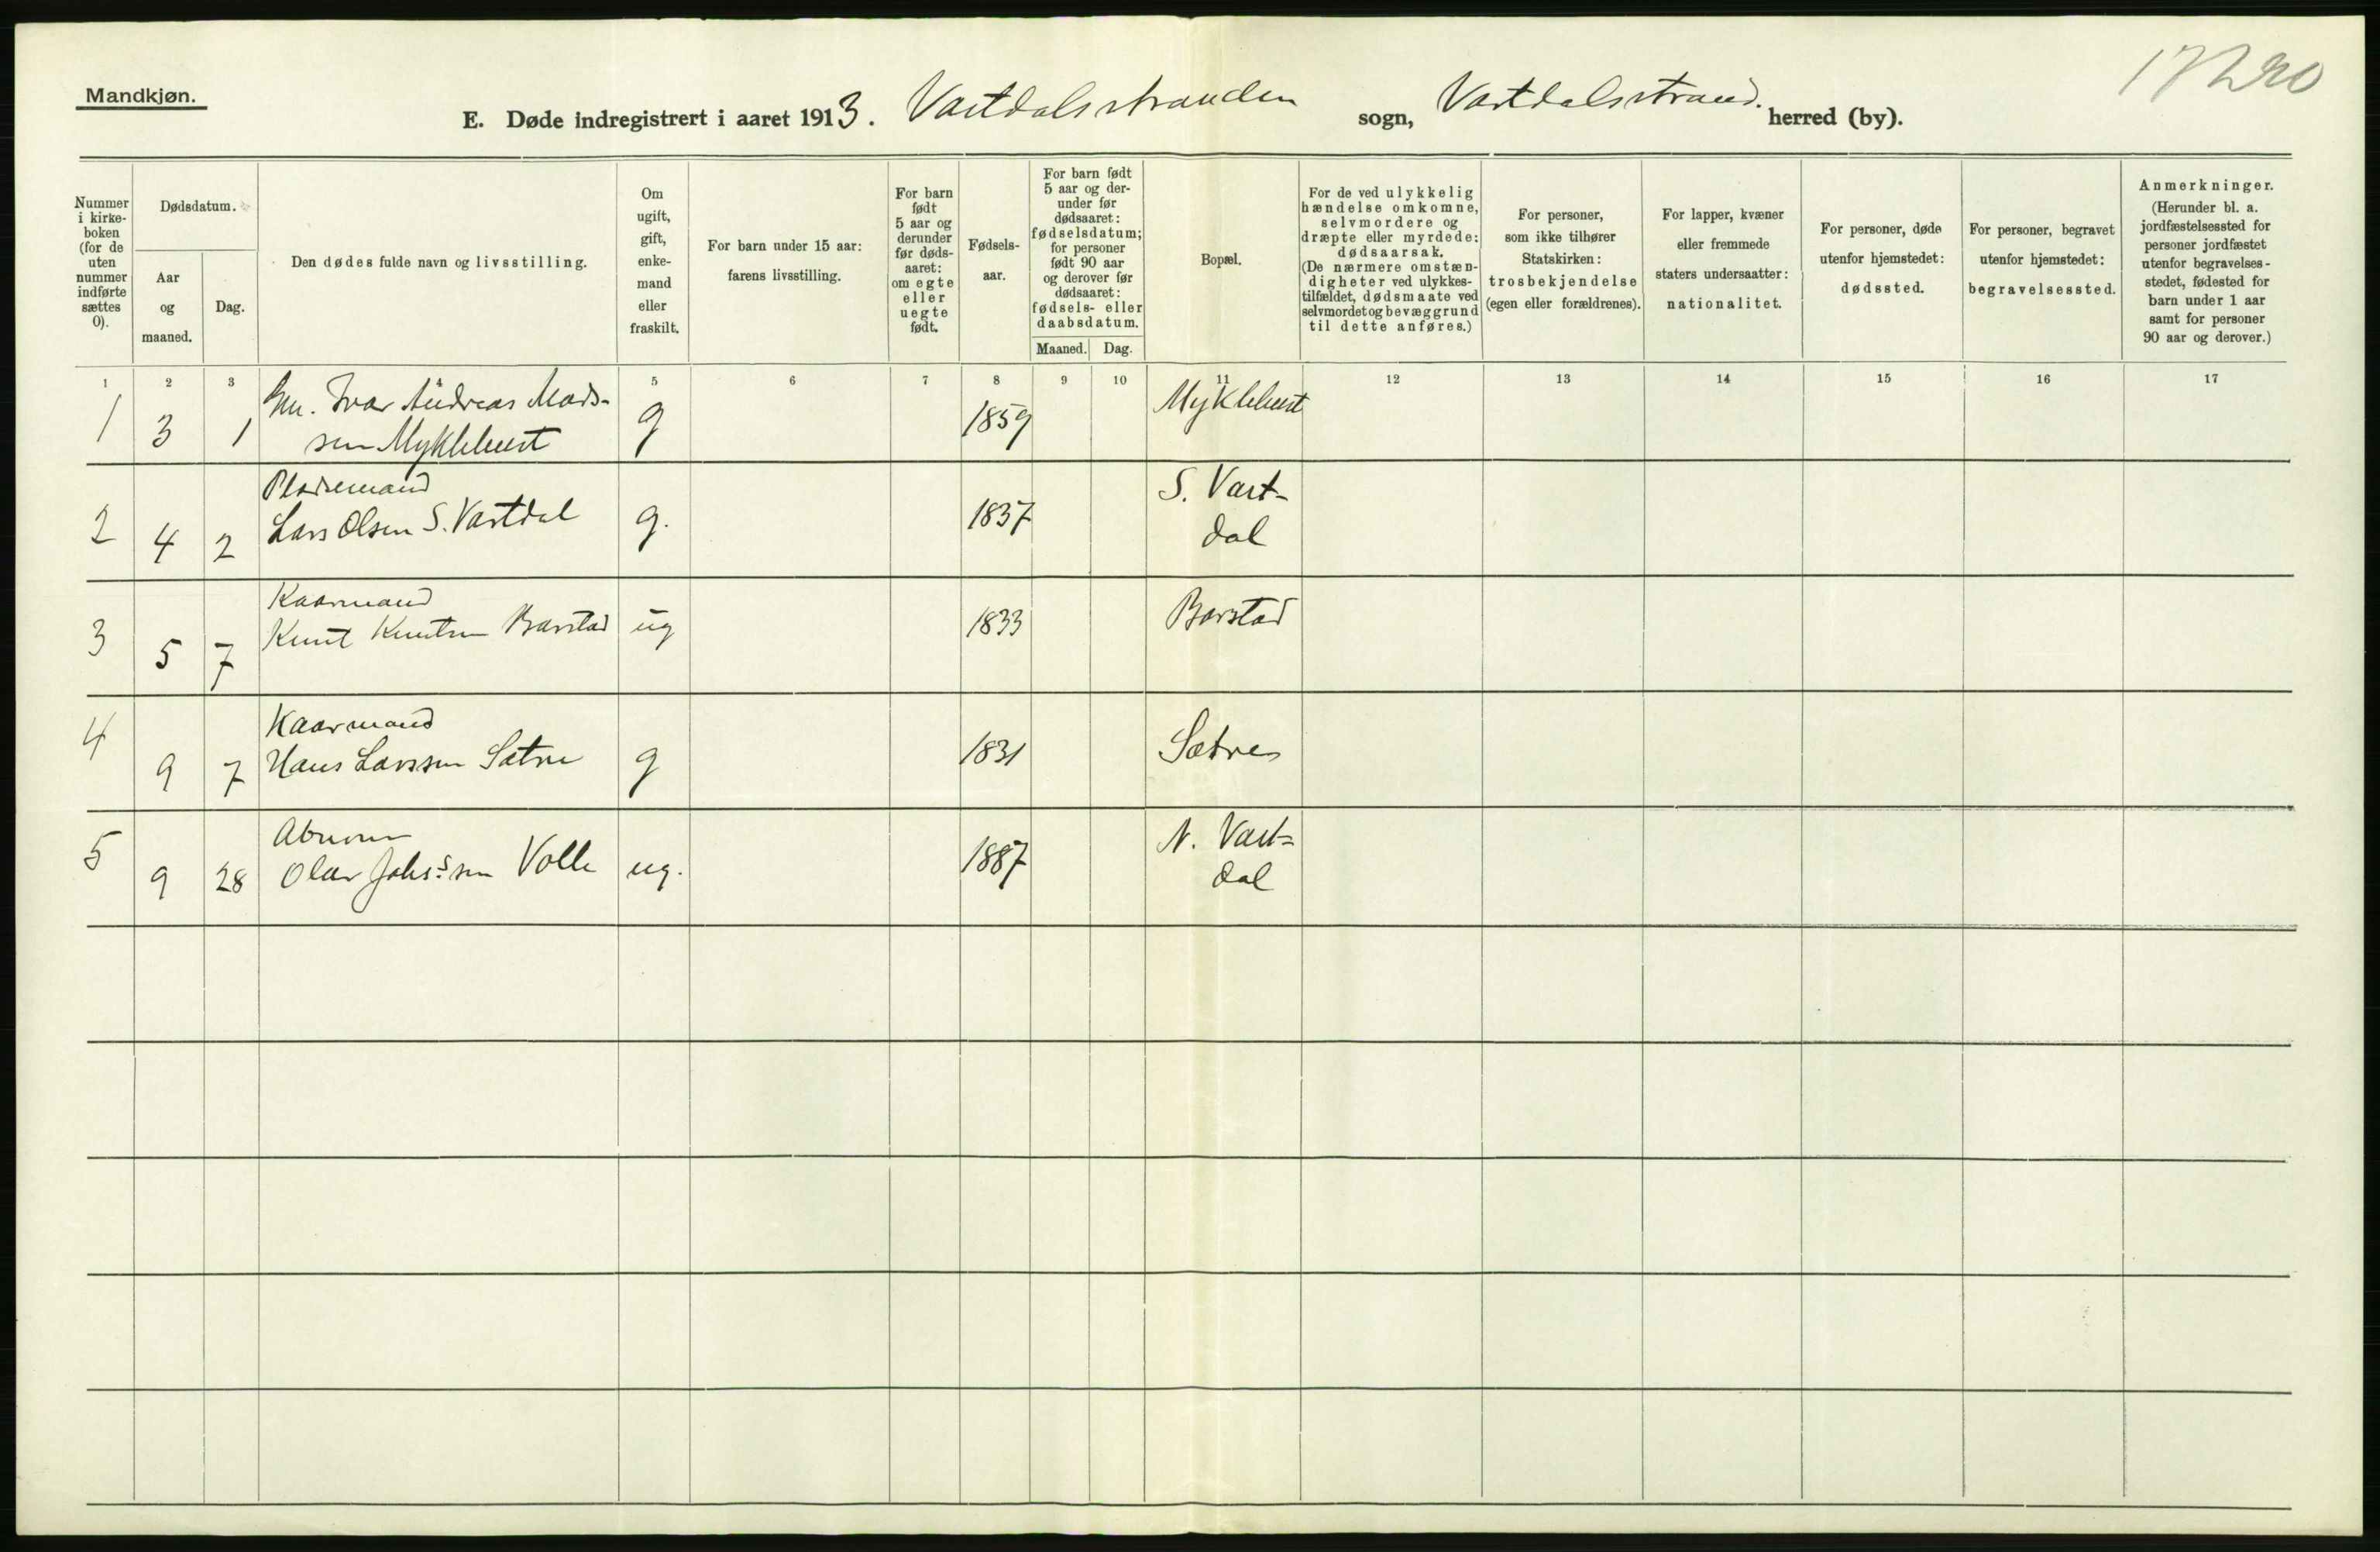 17220
Mandkjøn.
E. Døde indregistrert i aaret 1913. Vartdalsstranden sogn, Vartdalsstrand. herred (by).
Nummer
i kirke-
boken
(for de
uten
nummer
indførte
sættes
0).
Dødsdatum.
Aar
og
maaned.
Dag.
Den dødes fulde navn og livsstilling.
Om
ugift,
gift,
enke-
mand
eller
fraskilt.
For barn under 15 aar:
farens livsstilling.
For barn
født
5 aar og
derunder
før døds-
aaret:
om egte
eller
uegte
født.
Fødsels-
aar.
For barn født
5 aar og der-
under før
dødsaaret:
fødselsdatum;
for personer
født 90 aar
og derover før
dødsaaret:
fødsels- eller
daabsdatum.
Maaned. Dag.
Bopæl.
For de ved ulykkelig
hændelse omkomne,
selvmordere og
dræpte eller myrdede:
dødsaarsak.
(De nærmere omstæn-
digheter ved ulykkes-
tilfældet, dødsmaate ved
selvmordet og bevæggrund
til dette anføres.)
For personer,
som ikke tilhører
Statskirken:
trosbekjendelse
(egen eller forældrenes).
For lapper, kvæner
eller fremmede
staters undersaatter:
nationalitet.
For personer, døde
utenfor hjemstedet:
dødssted.
For personer, begravet
utenfor hjemstedet:
begravelsessted.
Anmerkninger.
(Herunder bl. a.
jordfæstelsessted for
personer jordfæstet
utenfor begravelses-
stedet, fødested for
barn under 1 aar
samt for personer
90 aar og derover.)
1 2 3 5 6 7 8 9 10 11 12 13 14 15 16 17
Gm. Ivar Andreas Mads-
1 3 1 sen Myklebust g 1859 Myklebust
Pladsemand
2 4 2 Lars Olsen S. Vartdal g. 1837 S. Vart-
dal
Kaarmand
3 5 7 Knut Knutsen Barstad ug 1833 Barstad
Kaarmand
4 9 7 Hans Larssen Sætre g 1831 Sætre
5 9 28 Olav Johs:sen Volle ug. 1887 N. Vart=
dal